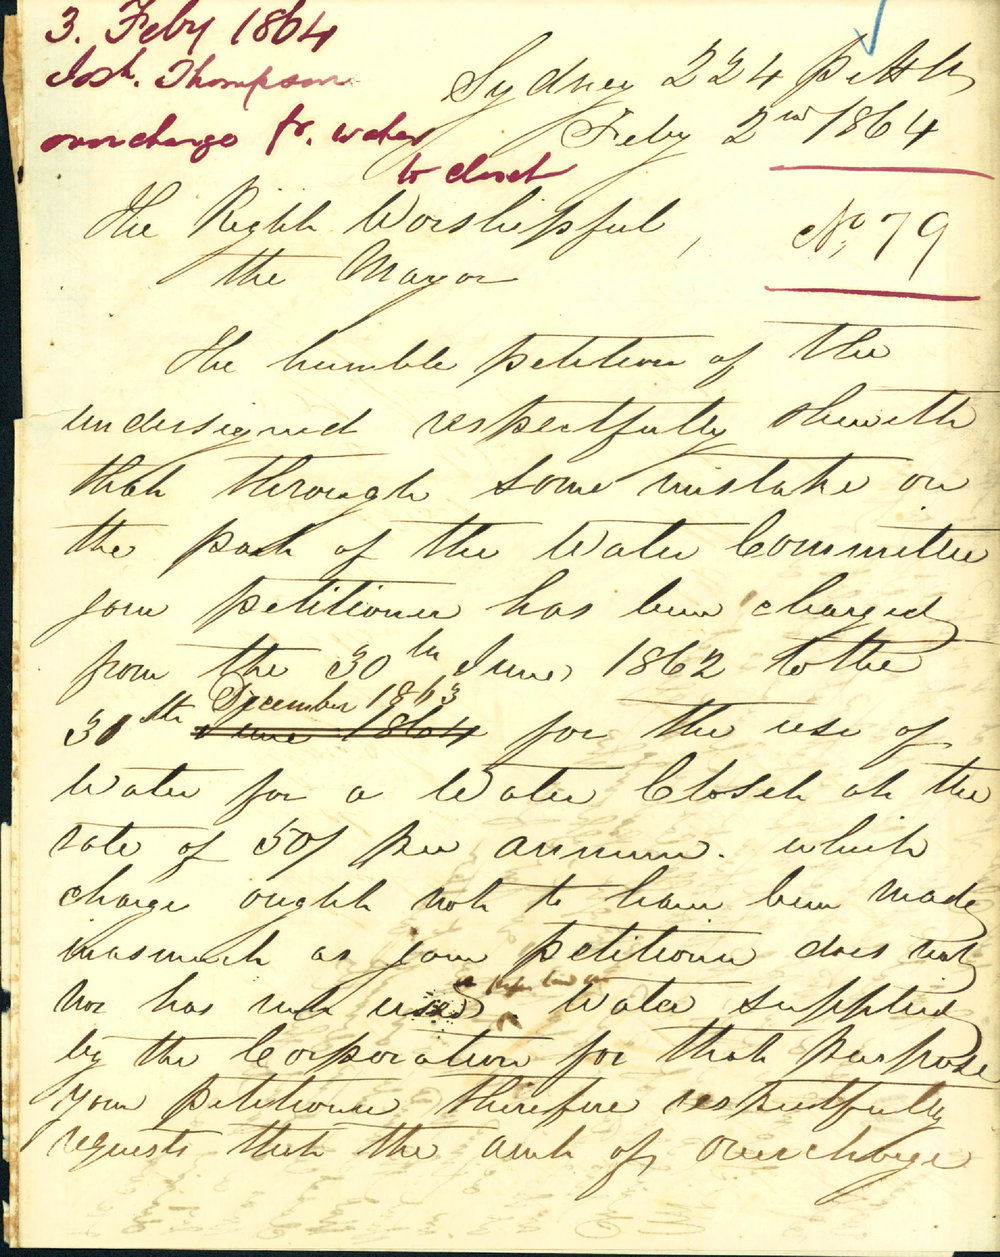 3. Feby 1864
Josh. Thompson
overcharge fr. water
to closet
Sydney 224 Pitt St
Feby 2nd 1864
No. 79
The Right Worshipful,
the Mayor
The humble petition of the
undersigned respectfully sheweth
that through some mistake on
the part of the Water Committee
your petitioner has been charged
from the 30th June 1862 to the
December 1863
31th June 1864 for the use of
Water for a Water Closet at the
rate of 50/ per annum. which
charge ought not to have been made
inasmuch as your petitioner does not
nor has not used Water supplied
by the Corporation for that purpose
your petitioner therefore respectfully
requests that the amt of overcharge